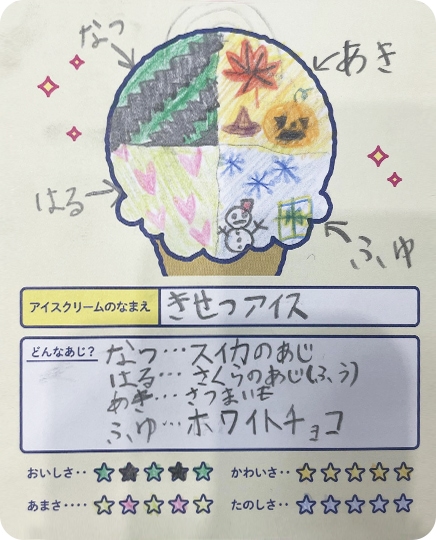 なつ
あき
はる
ふゆ
アイスクリームのなまえ きせつアイス
どんなあじ? なつ…スイカのあじ
はる…さくらのあじ(ふう)
あき…さつまいも
ふゆ…ホワイトチョコ
おいしさ‥ かわいさ‥
あまさ‥‥ たのしさ‥